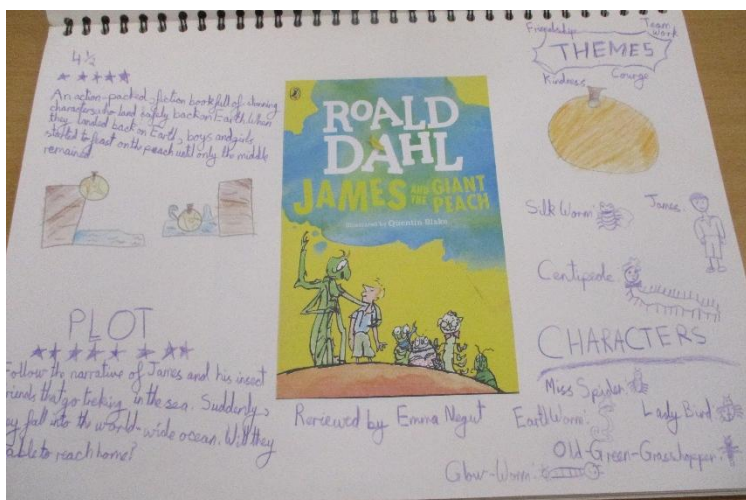 4 ½
An action-packed fiction book full of stunning
characters who land safely back on Earth. When
they landed back on Earth, boys and girls
started to feast on the peach until only the middle
remained.
PLOT
Follow the narrative of James and his insect
friends that go treking in the sea. Suddenly,
they fall into the world-wide ocean. Will they
able to reach home?
ROALD
DAHL
JAMES AND THE GIANT
PEACH
Illustrated by Quentin Blake
Reviewed by Emma Negut
Friendship
Team
Work
THEMES
Kindness
Courge
Silk Worm:
James:
Centipede:
CHARACTERS
Miss Spider:
Earth Worm:
Lady Bird:
Old-Green-Grasshopper:
Glow-Worm: